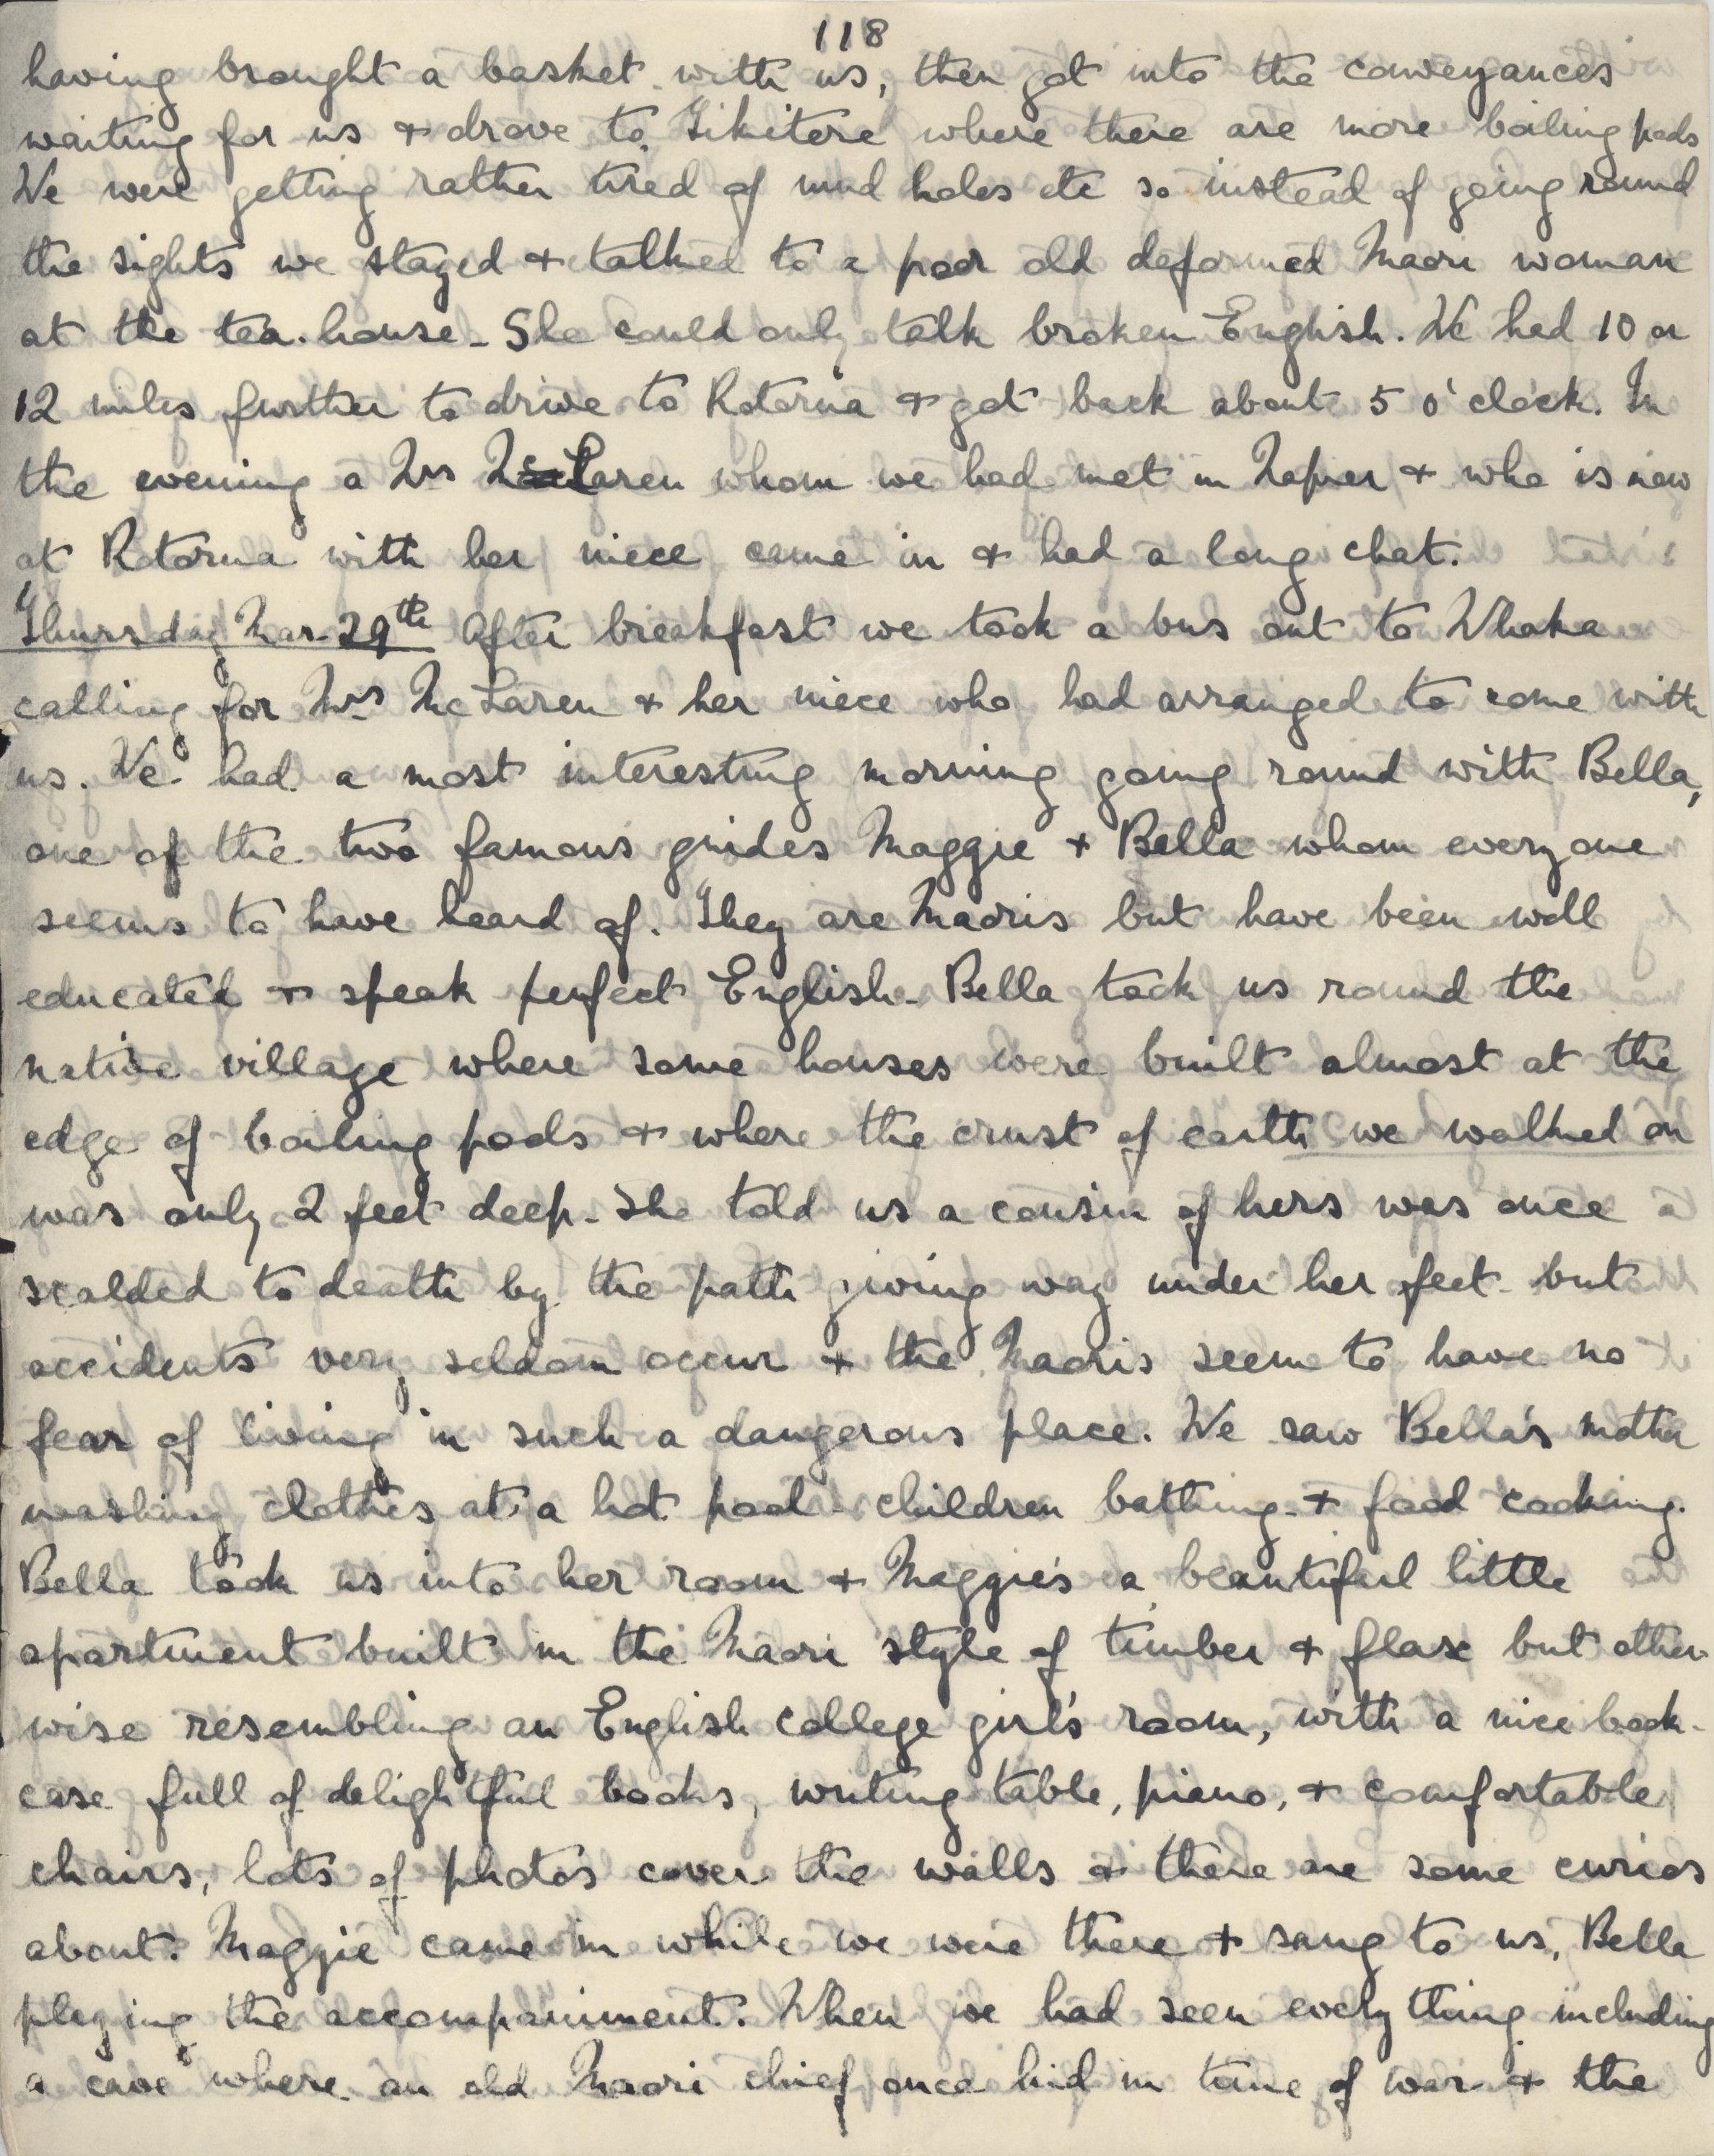 118
having brought a basket with us, then got into the conveyances
waiting for us & drove to Tikitere where there are more boiling pools
We were getting rather tired of mud holes etc so instead of going round
the sights we stayed & talked to a poor old deformed Maori woman
at the tea-house - She could only talk broken English. We had 10 or
12 miles further to drive to Rotorua & got back about 5 o'clock. In
the evening a Mrs McLaren whom we had met in Napier & who is now
at Rotorua with her niece came in & had a long chat.
Thursday Mar-29th After breakfast we took a bus out to Whaka
calling for Mrs McLaren & her niece who had arranged to come with
us. We had a most interesting morning going round with Bella,
one of the two famous guides Maggie & Bella whom everyone
seems to have heard of. They are Maoris but have been well
educated & speak perfect English - Bella took us round the
native village where some houses were built almost at the
edge of boiling pools & where the crust of earth we walked on
was only 2 feet deep - She told us a cousin of hers was once
scalded to death by the path giving way under her feet - but
accidents very seldom occur & the Maoris seem to have no
fear of living in such a dangerous place. We saw Bella's mother
washing clothes at a hot pool - children bathing - & food cooking.
Bella took us into her room & Maggie's a beautiful little
apartment built in the Maori style of timber & flax but other-
wise resembling an English college girl's room, with a nice book-
case full of delightful books, writing table, piano, & comfortable
chairs, lots of photos cover the walls & there are some curios
about. Maggie came in while we were there & sang to us, Bella
playing the accompaniment. When we had seen everything including
a cave where an old Maori chief once hid in time of war & the